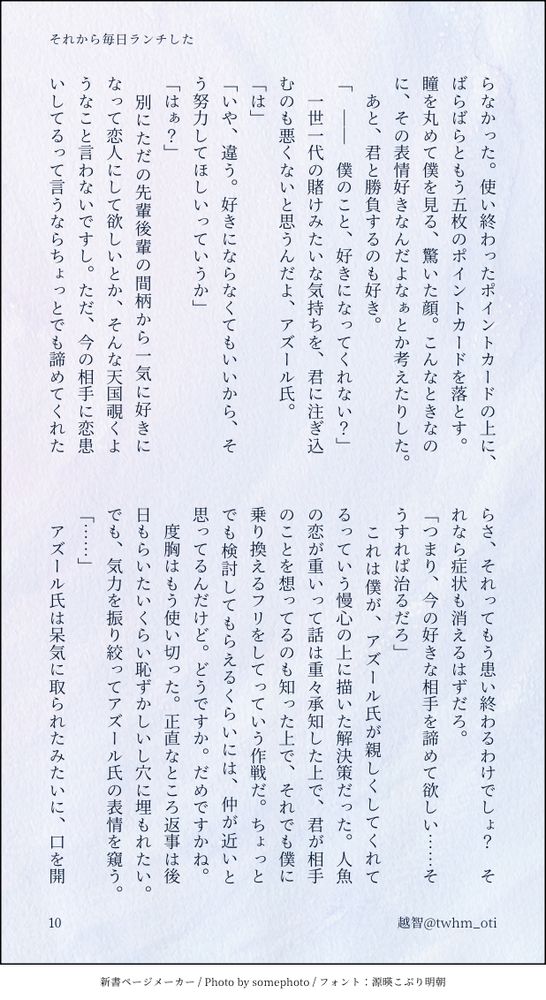 それから毎日ランチした
らなかった。使い終わったポイントカードの上に、
ばらばらともう五枚のポイントカードを落とす。
瞳を丸めて僕を見る、驚いた顔。こんなときなの
に、その表情好きなんだよなぁとか考えたりした。
あと、君と勝負するのも好き。
「――　僕のこと、好きになってくれない？」
一世一代の賭けみたいな気持ちを、君に注ぎ込
むのも悪くないと思うんだよ、アズール氏。
「は」
「いや、違う。好きにならなくてもいいから、そ
う努力してほしいっていうか」
「はぁ？」
別にただの先輩後輩の間柄から一気に好きに
なって恋人にして欲しいとか、そんな天国覗くよ
うなこと言わないですし。ただ、今の相手に恋患
いしてるって言うならちょっとでも諦めてくれた
らさ、それってもう患い終わるわけでしょ？　そ
れなら症状も消えるはずだろ。
「つまり、今の好きな相手を諦めて欲しい……そ
うすれば治るだろ」
これは僕が、アズール氏が親しくしてくれて
るっていう慢心の上に描いた解決策だった。人魚
の恋が重いって話は重々承知した上で、君が相手
のことを想ってるのも知った上で、それでも僕に
乗り換えるフリをしてっていう作戦だ。ちょっと
でも検討してもらえるくらいには、仲が近いと
思ってるんだけど。どうですか。だめですかね。
度胸はもう使い切った。正直なところ返事は後
日もらいたいくらい恥ずかしいし穴に埋もれたい。
でも、気力を振り絞ってアズール氏の表情を窺う。
「……」
アズール氏は呆気に取られたみたいに、口を開
10
越智@twhm_oti
新書ページメーカー / Photo by somephoto / フォント：源暎こぶり明朝